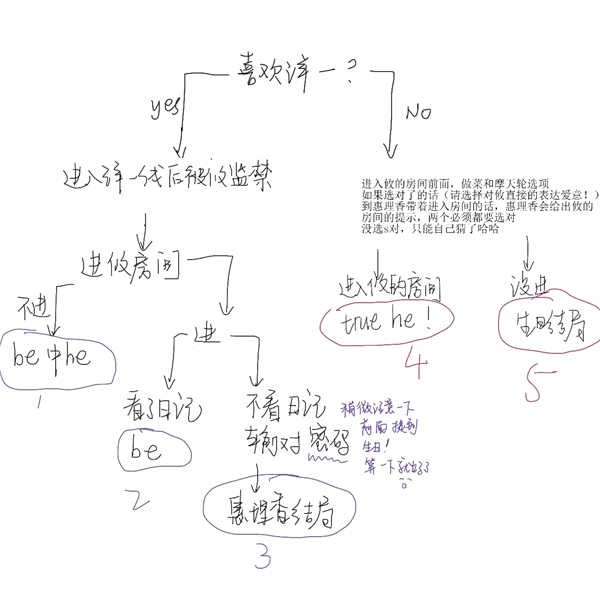 喜欢泽一？
yes
NO
进入泽一线后被攸监禁
进入攸的房间前面，做菜和摩天轮选项
如果选对了的话（请选择对攸直接的表达爱意！）
到惠理香带着进入房间的话，惠理香会给出攸的
房间的提示，两个必须都要选对
没选s对，只能自己猜了哈哈
进攸房间
不进
进
进入攸的房间
没进
be中he
true he！
生日结局
1
4
5
看了日记
不看日记
输对密码
稍微注意一下
前面提到
生日！
算一下就出了
be
2
惠理香结局
3